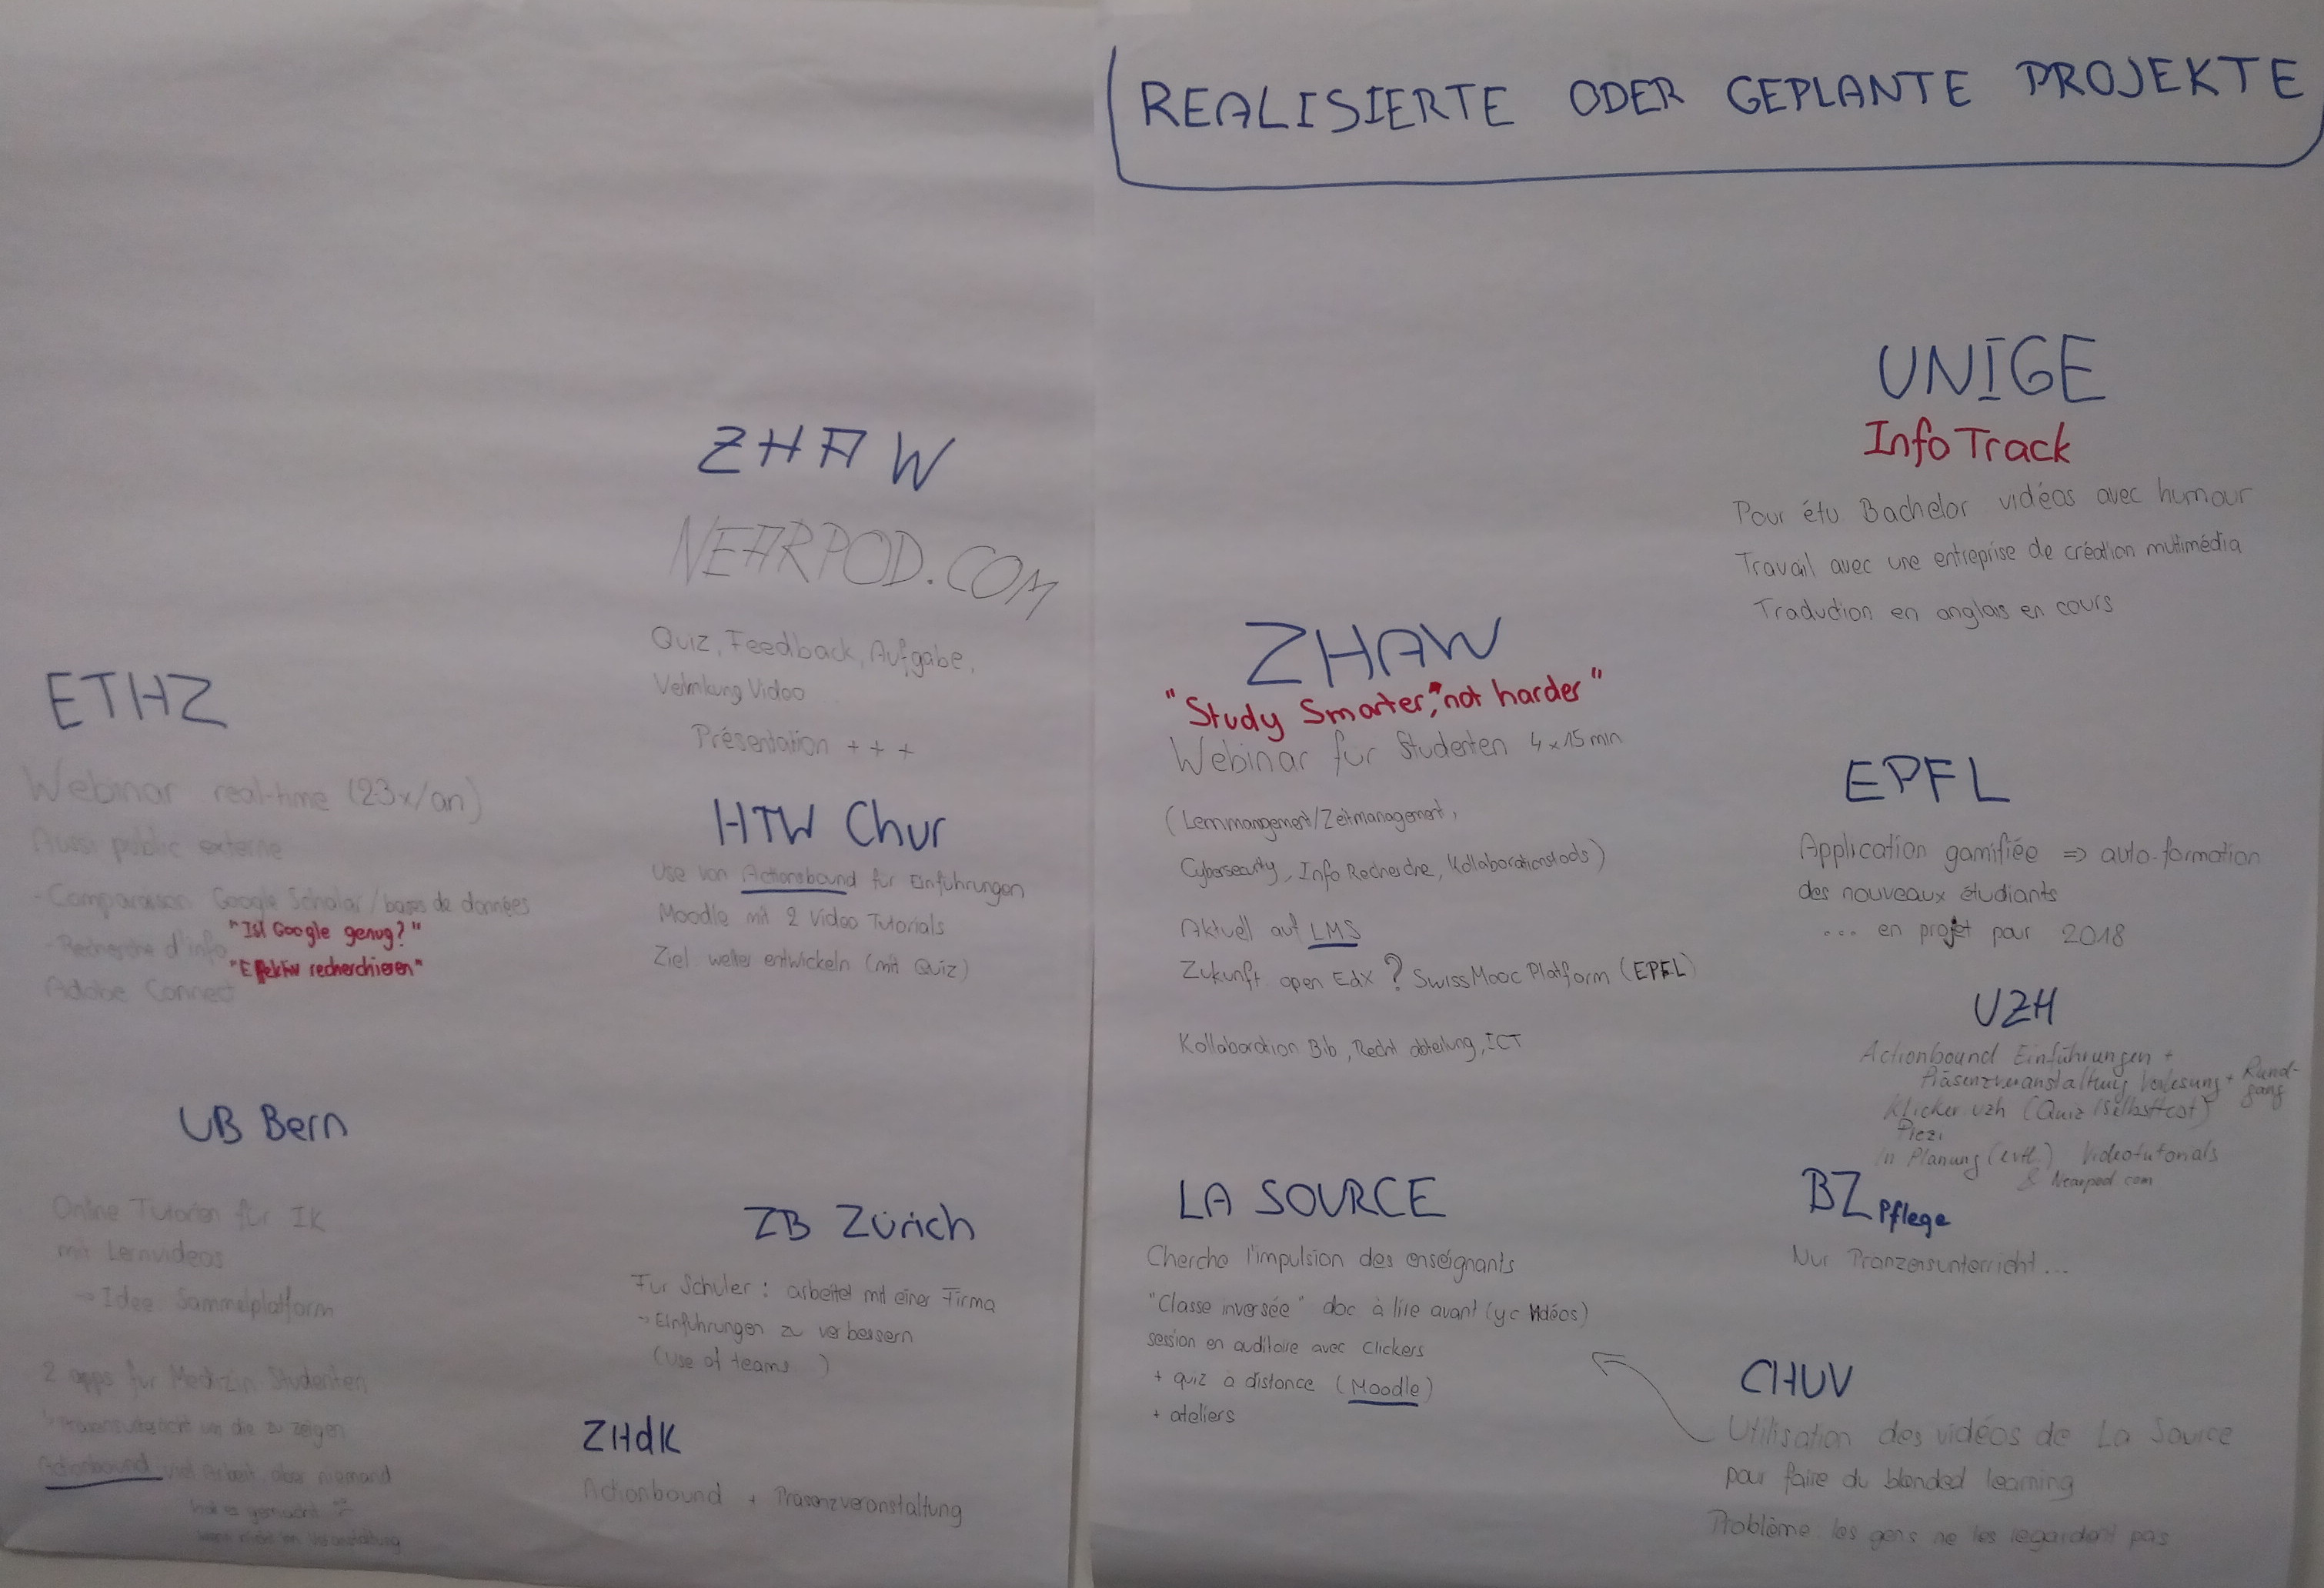 REALISIERTE ODER GEPLANTE PROJEKTE
ETHZ
Webinar real-time (23x/an)
Aussi public externe
- Comparaison Google Scholar / bases de données
"Ist Google genug?"
- Recherche d'info
"Effektiv recherchieren"
Adobe Connect
UB Bern
Online Tutorien für IK
mit Lernvideos
→ Idee: Sammelplatform
2 apps für Medizin Studenten
um die zu zeigen
Actionbound viel Arbeit, aber niemand
hat es gemacht
ZHAW
NEARPOD.COM
Quiz, Feedback, Aufgabe,
Verlinkung Video
Présentation + + +
HTW Chur
Use von Actionbound für Einführungen
Moodle mit 2 Video Tutorials
Ziel: weiter entwickeln (mit Quiz)
ZB Zürich
Für Schüler : arbeitet mit einer Firma
→ Einführungen zu verbessern
(use of teams )
ZHdK
Actionbound + Präsenzveranstaltung
ZHAW
"Study Smarter, not harder"
Webinar für Studenten 4x15min
(Lernmangement/Zeitmanagement,
Cybersecurity, Info Recherche, Kollaborationstools)
Aktuell auf LMS
Zukunft open EdX ? SwissMooc Platform (EPFL)
Kollaboration Bib, Recht abteilung, ICT
LA SOURCE
Cherche l'impulsion des enseignants
"Classe inversée" doc à lire avant (yc vidéos)
session en auditoire avec Clickers
+ quiz à distance (Moodle)
+ ateliers
UNIGE
InfoTrack
Pour étu Bachelor vidéos avec humour
Travail avec une entreprise de création multimédia
Traduction en anglais en cours
EPFL
Application gamifiée => auto-formation
des nouveaux étudiants
... en projet pour 2018
UZH
Actionbound Einführungen +
Präsenzveranstaltung Vorlesung + Rund-
gang
Klicker uzh (Quiz/Selbsttest)
Prezi
in Planung (evtl.) Videotutorials
& Nearpod.com
BZ Pflege
Nur Pränzensunterricht...
CHUV
Utilisation des vidéos de La Source
pour faire du blended learning
Problème les gens ne les regardent pas